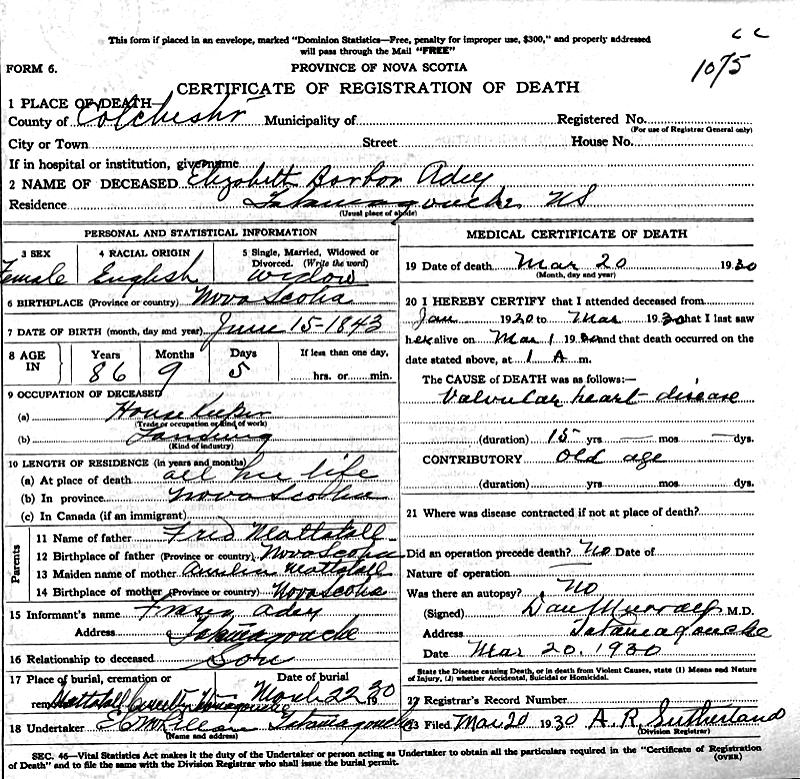 This form if placed in an envelope, marked "Dominion Statistics—Free, penalty for improper use, $300," and properly addressed
will pass through the Mail "FREE"
c c
1075
FORM 6.
PROVINCE OF NOVA SCOTIA
CERTIFICATE OF REGISTRATION OF DEATH
1 PLACE OF DEATH
County of Colchester Municipality of Registered No.
(For use of Registrar General only)
City or Town Street House No.
If in hospital or institution, give name
2 NAME OF DECEASED Elizabeth Barbor Adey
Residence Tatamagouche NS
(Usual place of abode)
PERSONAL AND STATISTICAL INFORMATION
3 SEX 4 RACIAL ORIGIN 5 Single, Married, Widowed or
Divorced. (Write the word)
Female English Widow
6 BIRTHPLACE (Province or country) Nova Scotia
7 DATE OF BIRTH (month, day and year) June 15-1843
8 AGE IN Years Months Days If less than one day,
86 9 5 hrs. or min.
9 OCCUPATION OF DECEASED
(a) House keeper
(Trade or occupation or kind of work)
(b)
(Kind of industry)
10 LENGTH OF RESIDENCE (in years and months)
(a) At place of death all her life
(b) In province Nova Scotia
(c) In Canada (if an immigrant)
Parents
11 Name of father Fred Mattatall
12 Birthplace of father (Province or country) Nova Scotia
13 Maiden name of mother Amelia Mattatall
14 Birthplace of mother (Province or country) Nova Scotia
15 Informant's name Fraser Adey
Address Tatamagouche
16 Relationship to deceased Son
17 Place of burial, cremation or Date of burial
Mattatall March 22 1930
18 Undertaker Tatamagouche
(Name and address)
MEDICAL CERTIFICATE OF DEATH
19 Date of death Mar 20 1930
(Month, day and year)
20 I HEREBY CERTIFY that I attended deceased from
Jan 1920 to Mar 1930 that I last saw
her alive on Mar 1 1930 and that death occurred on the
date stated above, at 1 A m.
The CAUSE of DEATH was as follows:—
Valvular heart disease
(duration) 15 yrs — mos — dys.
CONTRIBUTORY old age
(duration) yrs. mos. dys.
21 Where was disease contracted if not at place of death?
Did an operation precede death? No Date of
Nature of operation —
Was there an autopsy? No
(Signed) Dan Murray M.D.
Address Tatamagouche
Date Mar 20. 1930
State the Disease causing Death, or in death from Violent Causes, state (1) Means and Nature
of Injury, (2) whether Accidental, Suicidal or Homicidal.
22 Registrar's Record Number
23 Filed Mar 20 1930 A. R. Sutherland
(Division Registrar)
SEC. 46—Vital Statistics Act makes it the duty of the Undertaker or person acting as Undertaker to obtain all the particulars required in the "Certificate of Registration
of Death" and to file the same with the Division Registrar who shall issue the burial permit.
(OVER)